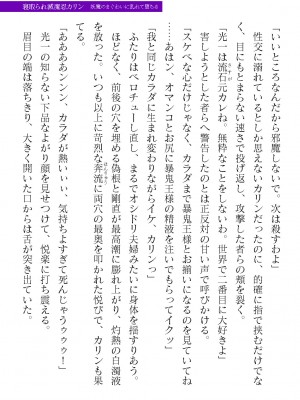 寝取られ滅魔忍カリン 妖魔のまぐわいに乱れて堕ちる
「いいところなんだから邪魔しないで、次は殺すわよ」
　性交に溺れているとしか思えないカリンだったのに、的確に指で挟むだけでな
く、目にもとまらない速さで投げ返し、攻撃した者らの頬を裂く。
「光一は流石元カレね、無粋なことをしないわ。世界で二番目に大好きよ」
　害しようとした者らへ警告したのとは正反対の甘い声で呼びかける。
「スケベな心だけじゃなく、カラダまで暴鬼王様とお揃いになるのを見ていてね
……あはン、オマンコとお尻に暴鬼王様の精液を注いでもらってイクッ」
「我と同じカラダに生まれ変わりながらイケ、カリンっ」
　ふたりはベロチューし直し、まるでオシドリ夫婦みたいに身体を揺すりあう。
　ほどなく、前後の穴を埋める偽根と剛直が最高潮に膨れ上がり、灼熱の白濁液
を放った。いつも以上に苛烈な奔流に両穴の最奥を叩かれた悦びで、カリンも果
「ああああンンン、カラダが熱いぃぃ、気持ちよすぎて死んじゃうぅぅぅ！」
　光一の知らない下品なよがり顔を見せつけて、悦楽に打ち震える。
　眉目の端は落ちきり、大きく開いた口からは舌が突き出ていた。